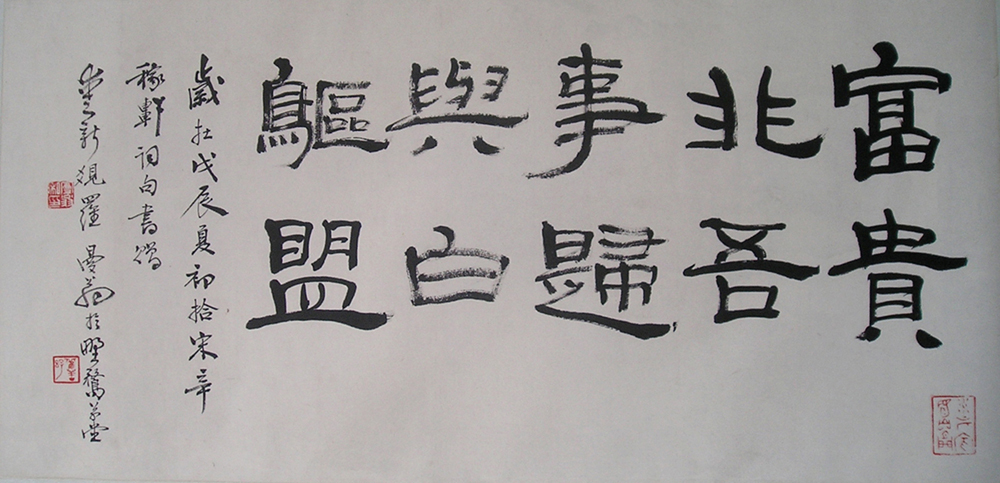 富貴
非吾
事歸
與白
鷗盟
歲在戊辰夏初拾宋辛
稼軒詞句書贈
愛新覺羅曼翁於野鶩草堂